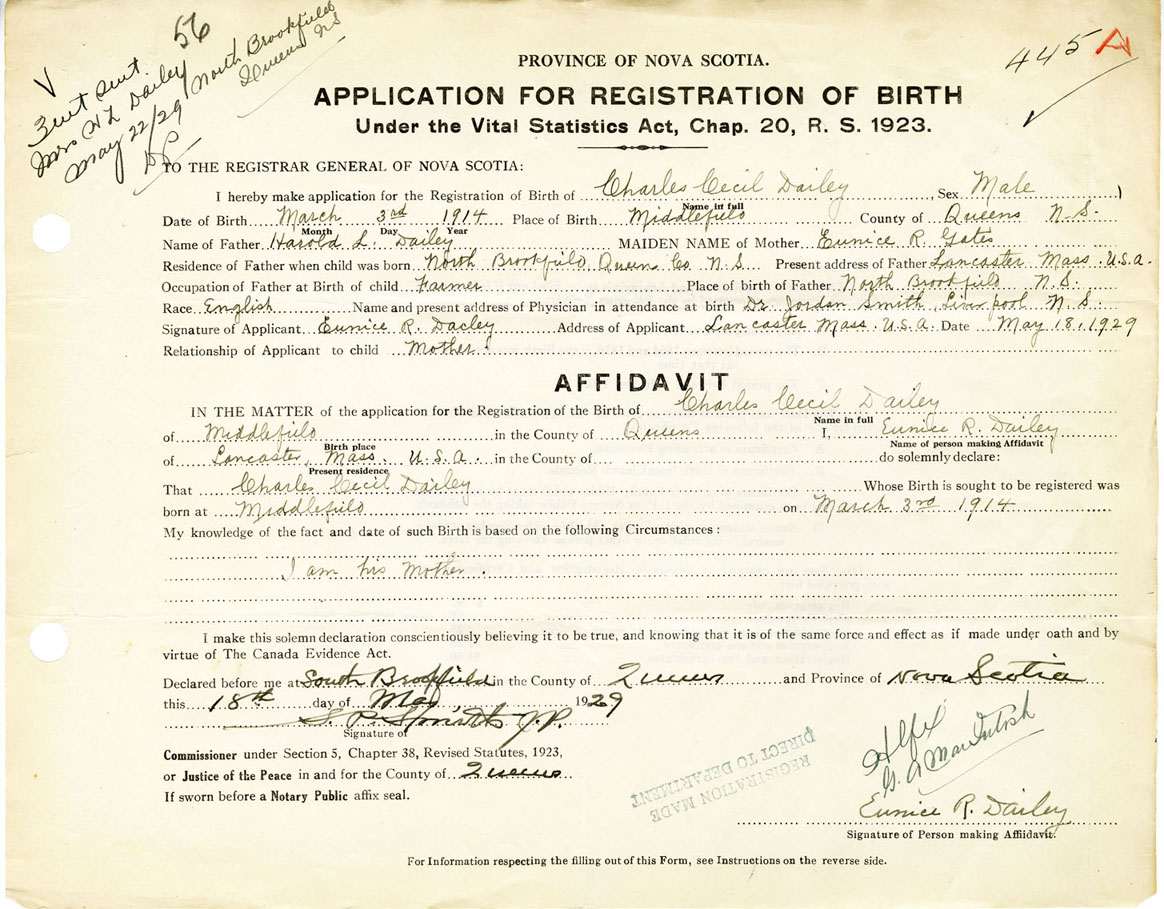 56
445 A
Mrs H L Dailey
North Brookfield
Queens NS
May 22/29
PROVINCE OF NOVA SCOTIA.
APPLICATION FOR REGISTRATION OF BIRTH
Under the Vital Statistics Act, Chap. 20, R. S. 1923.
TO THE REGISTRAR GENERAL OF NOVA SCOTIA:
I hereby make application for the Registration of Birth of Charles Cecil Dailey, Sex Male
Name in full
Date of Birth March 3rd 1914 Place of Birth Middlefield County of Queens N.S.
Month Day Year
Name of Father Harold L. Dailey MAIDEN NAME of Mother Eunice R. Gates
Residence of Father when child was born North Brookfield Queens Co N.S. Present address of Father Lancaster Mass. U.S.A.
Occupation of Father at Birth of child Farmer Place of birth of Father North Brookfield N.S.
Race English Name and present address of Physician in attendance at birth Dr. Jordan Smith, Liverpool N.S.
Signature of Applicant Eunice R. Dailey Address of Applicant Lancaster Mass. U.S.A. Date May 18, 1929
Relationship of Applicant to child Mother.
AFFIDAVIT
IN THE MATTER of the application for the Registration of the Birth of Charles Cecil Dailey
Name in full
of Middlefield in the County of Queens I, Eunice R. Dailey
Birth place Name of person making Affidavit
of Lancaster, Mass. U.S.A. in the County of do solemnly declare:
Present residence
That Charles Cecil Dailey Whose Birth is sought to be registered was
born at Middlefield on March 3rd 1914
My knowledge of the fact and date of such Birth is based on the following Circumstances:
I am his Mother.
I make this solemn declaration conscientiously believing it to be true, and knowing that it is of the same force and effect as if made under oath and by
virtue of The Canada Evidence Act.
Declared before me at South Brookfield in the County of Queens and Province of Nova Scotia
this 18th day of May 1929
S. P. Smith J.P.
Signature of
Commissioner under Section 5, Chapter 38, Revised Statutes, 1923,
or Justice of the Peace in and for the County of Queens
If sworn before a Notary Public affix seal.
REGISTRATION MADE
DIRECT TO DEPARTMENT
Hlfx
G. A MacIntosh
Eunice R. Dailey
Signature of Person making Affidavit.
For Information respecting the filling out of this Form, see Instructions on the reverse side.